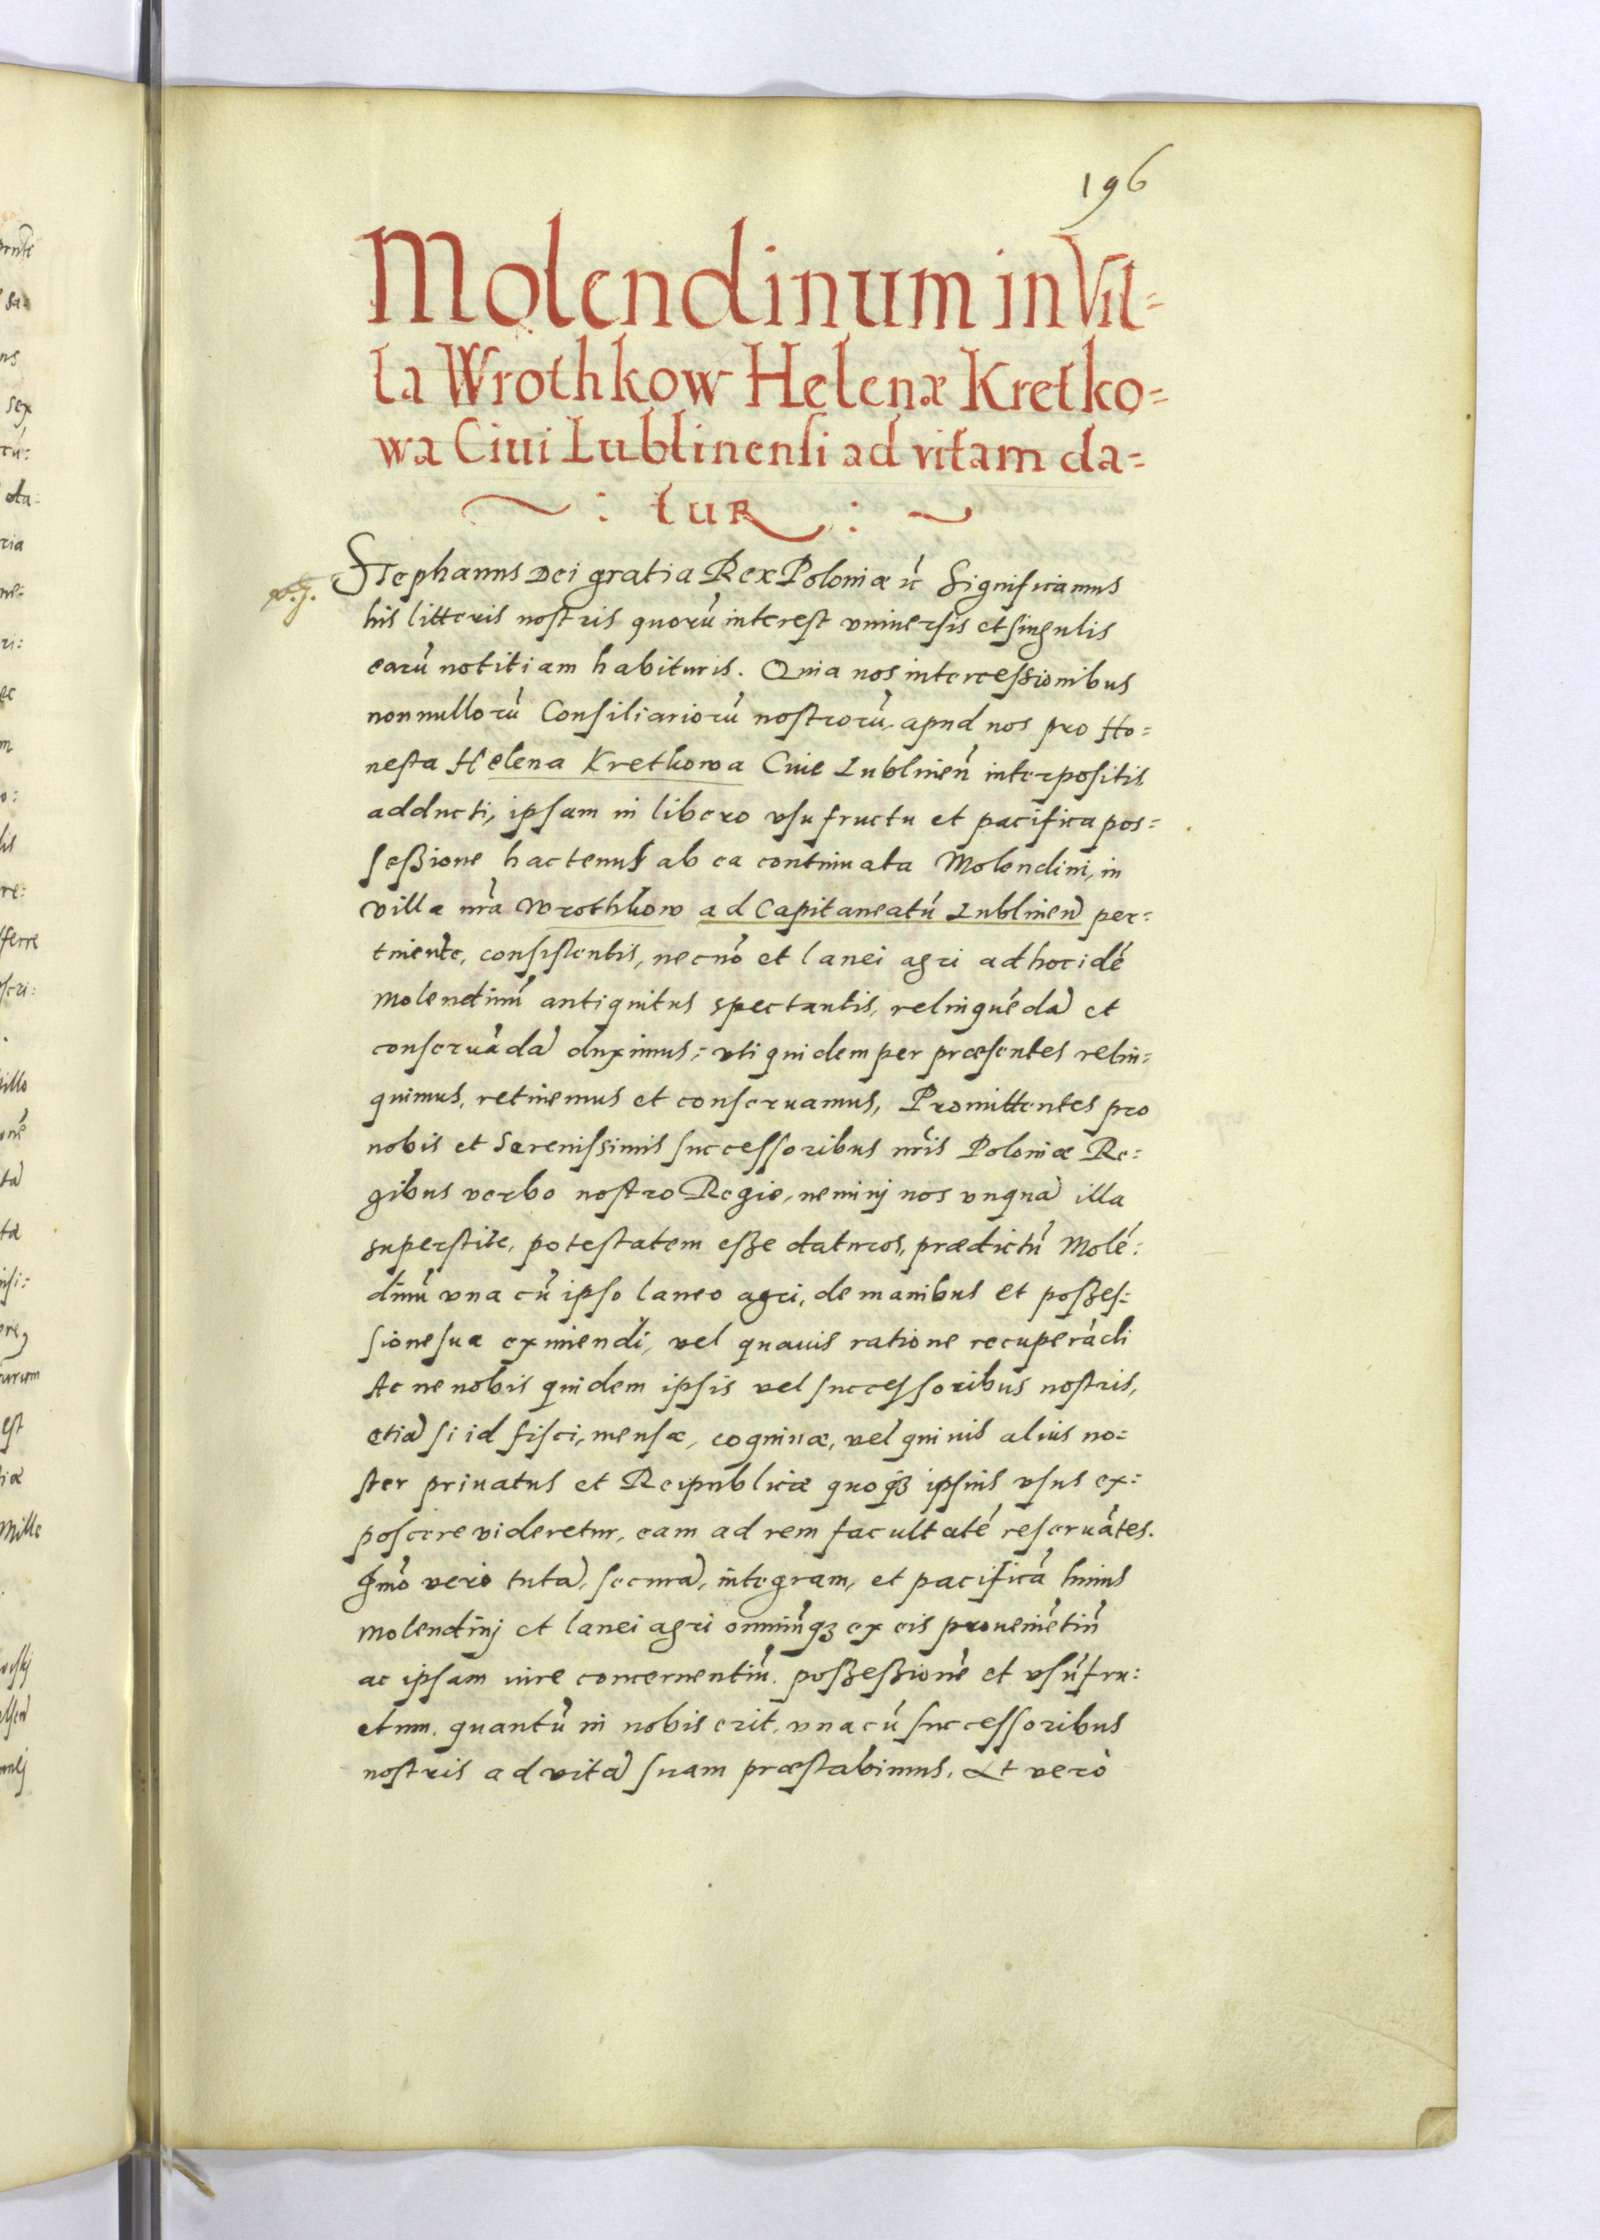 196
Molendinum in Vil=
la Wrothkow Helenæ Kretko=
wa Ciui Lublinensi ad vitam da=
~ : tur : ~
Stephanus Dei gratia Rex Poloniæ ić Significamus
his litteris nostris quorū interest vniuersis et singulis
earū notitiam habituris. Quia nos intercessionibus
nonnullorū Consiliariorū nostrorū, apud nos pro Ho=
nesta Helena Kretkowa Ciue Lublineñ interpositis
adducti, ipsam in libero vsufructu et pacifica pos=
seßione hactenus ab ea continuata Molendini, in
villa nrã Wrothkow ad Capitaneatū Lublineñ per=
tineñte, consistentis, necnō et lanei agri ad hoc idē
molendinū antiquitus spectantis, relinquēdā et
conseruādā duximus; vti quidem per præsentes relin=
quimus, retinemus et conseruamus, Promittentes pro
nobis et Serenissimis successoribus nr̄is Poloniæ Re=
gibus verbo nostro Regio, neminj nos vnquā illa
superstite, potestatem eße daturos, prædictū Molē=
dinū vna cū ipso laneo agri, de manibus et poßes=
sione sua eximendi, vel quauis ratione recuperādi
Ac ne nobis quidem ipsis vel successoribus nostris,
etiā si id fisci, mensæ, coquinæ, vel quiuis alius no=
ster priuatus et Reipublicæ quoqȝ ipsius vsus ex=
poscere videretur, eam ad rem facultatē reseruātes.
Imō verò tutā, securā, integram, et pacificā huius
molendinj et lanei agri omniūqȝ ex eis proueniētiū
ac ipsam iure concernentiū, poßeßionē et vsūfru=
ctum, quantū in nobis erit, vna cū successoribus
nostris ad vitā suam præstabimus. Et verò